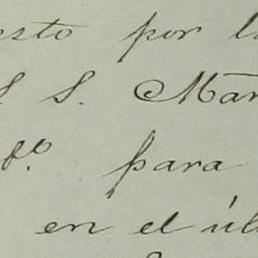 esto por l
S. S. Mar
fº. para
en el úl